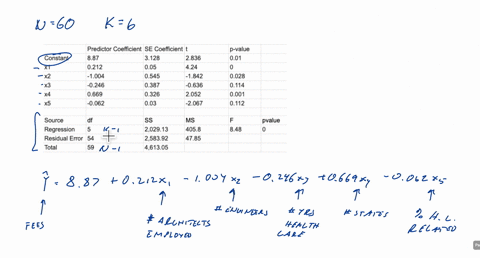 N=60 K=6
Predictor Coefficient SE Coefficient t p-value
Constant 8.87 3.128 2.836 0.01
x1 0.212 0.05 4.24 0
x2 -1.004 0.545 -1.842 0.028
x3 -0.246 0.387 -0.636 0.114
x4 0.669 0.326 2.052 0.001
x5 -0.062 0.03 -2.067 0.112
Source df SS MS F pvalue
Regression 5 K-1 2,029.13 405.8 8.48 0
Residual Error 54 2,583.92 47.85
Total 59 N-1 4,613.05
Ŷ = 8.87 + 0.212x1 - 1.004x2 - 0.246x3 + 0.669x4 - 0.062x5
FEES
# ARCHITECTS EMPLOYED
# ENGINEERS
# YRS HEALTH CARE
# STATES
% H.C. RELATED